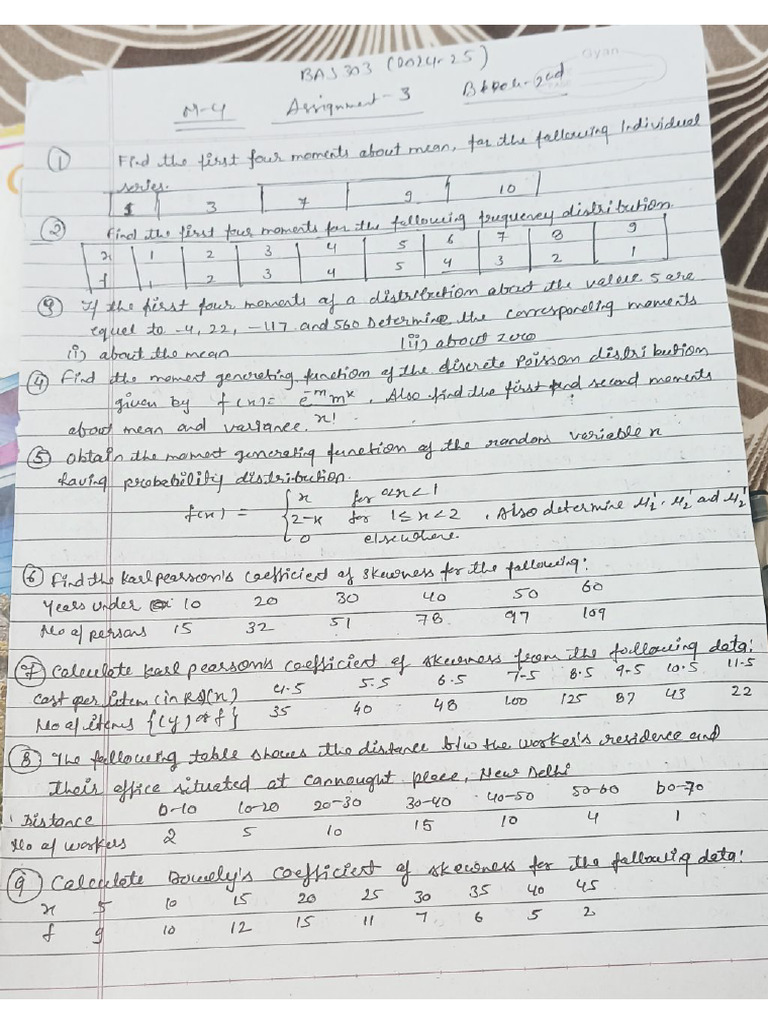 BAS 303 (2024-25)
Gyan
M-4 Assignment-3
① Find the first four moments about mean, for the following Individual
series.
1 3 7 9 10
② Find the first four moments for the following frequency distribution.
x 1 2 3 4 5 6 7 8 9
f 1 2 3 4 5 4 3 2 1
③ If the first four moments of a distribution about the value 5 are
equal to -4, 22, -117 and 560 Determine the corresponding moments
(i) about the mean (ii) about zero
④ Find the moment generating function of the discrete Poisson distribution
given by f(x) = e^-m m^x / x! . Also find the first and second moments
about mean and variance.
⑤ obtain the moment generating function of the random variable x
having probability distribution.
f(x) = { x for 0<x<1
2-x for 1≤x<2 , Also determine μ1', μ2' and μ2'
0 elsewhere.
⑥ Find the karl pearson's coefficient of skewness for the following:
Years under 10 20 30 40 50 60
No of persons 15 32 51 78 97 109
⑦ Calculate karl pearson's coefficient of skewness from the following data:
Cost per item (in Rs)(x) 4.5 5.5 6.5 7.5 8.5 9.5 10.5 11.5
No of items {(y) or f} 35 40 48 100 125 87 43 22
⑧ The following table shows the distance b/w the worker's residence and
their office situated at cannought place, New Delhi
Distance 0-10 10-20 20-30 30-40 40-50 50-60 60-70
No of workers 2 5 10 15 10 4 1
⑨ Calculate Bowely's coefficient of skewness for the following data:
x 5 10 15 20 25 30 35 40 45
f 9 10 12 15 11 7 6 5 2